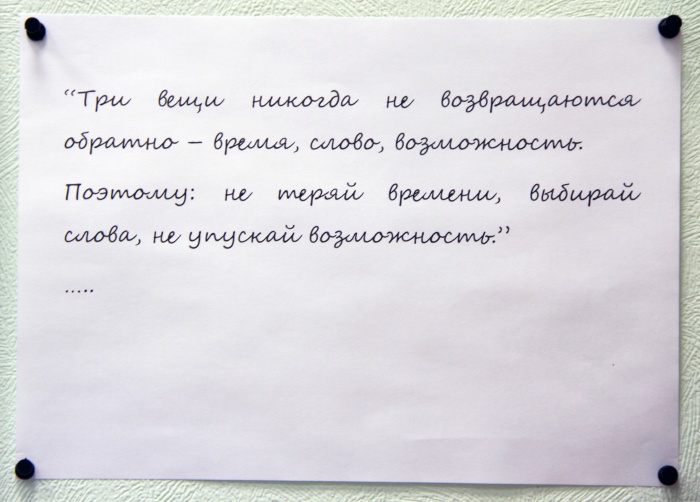 “Три вещи никогда не возвращаются
обратно – время, слово, возможность.
Поэтому: не теряй времени, выбирай
слова, не упускай возможность.”
.....